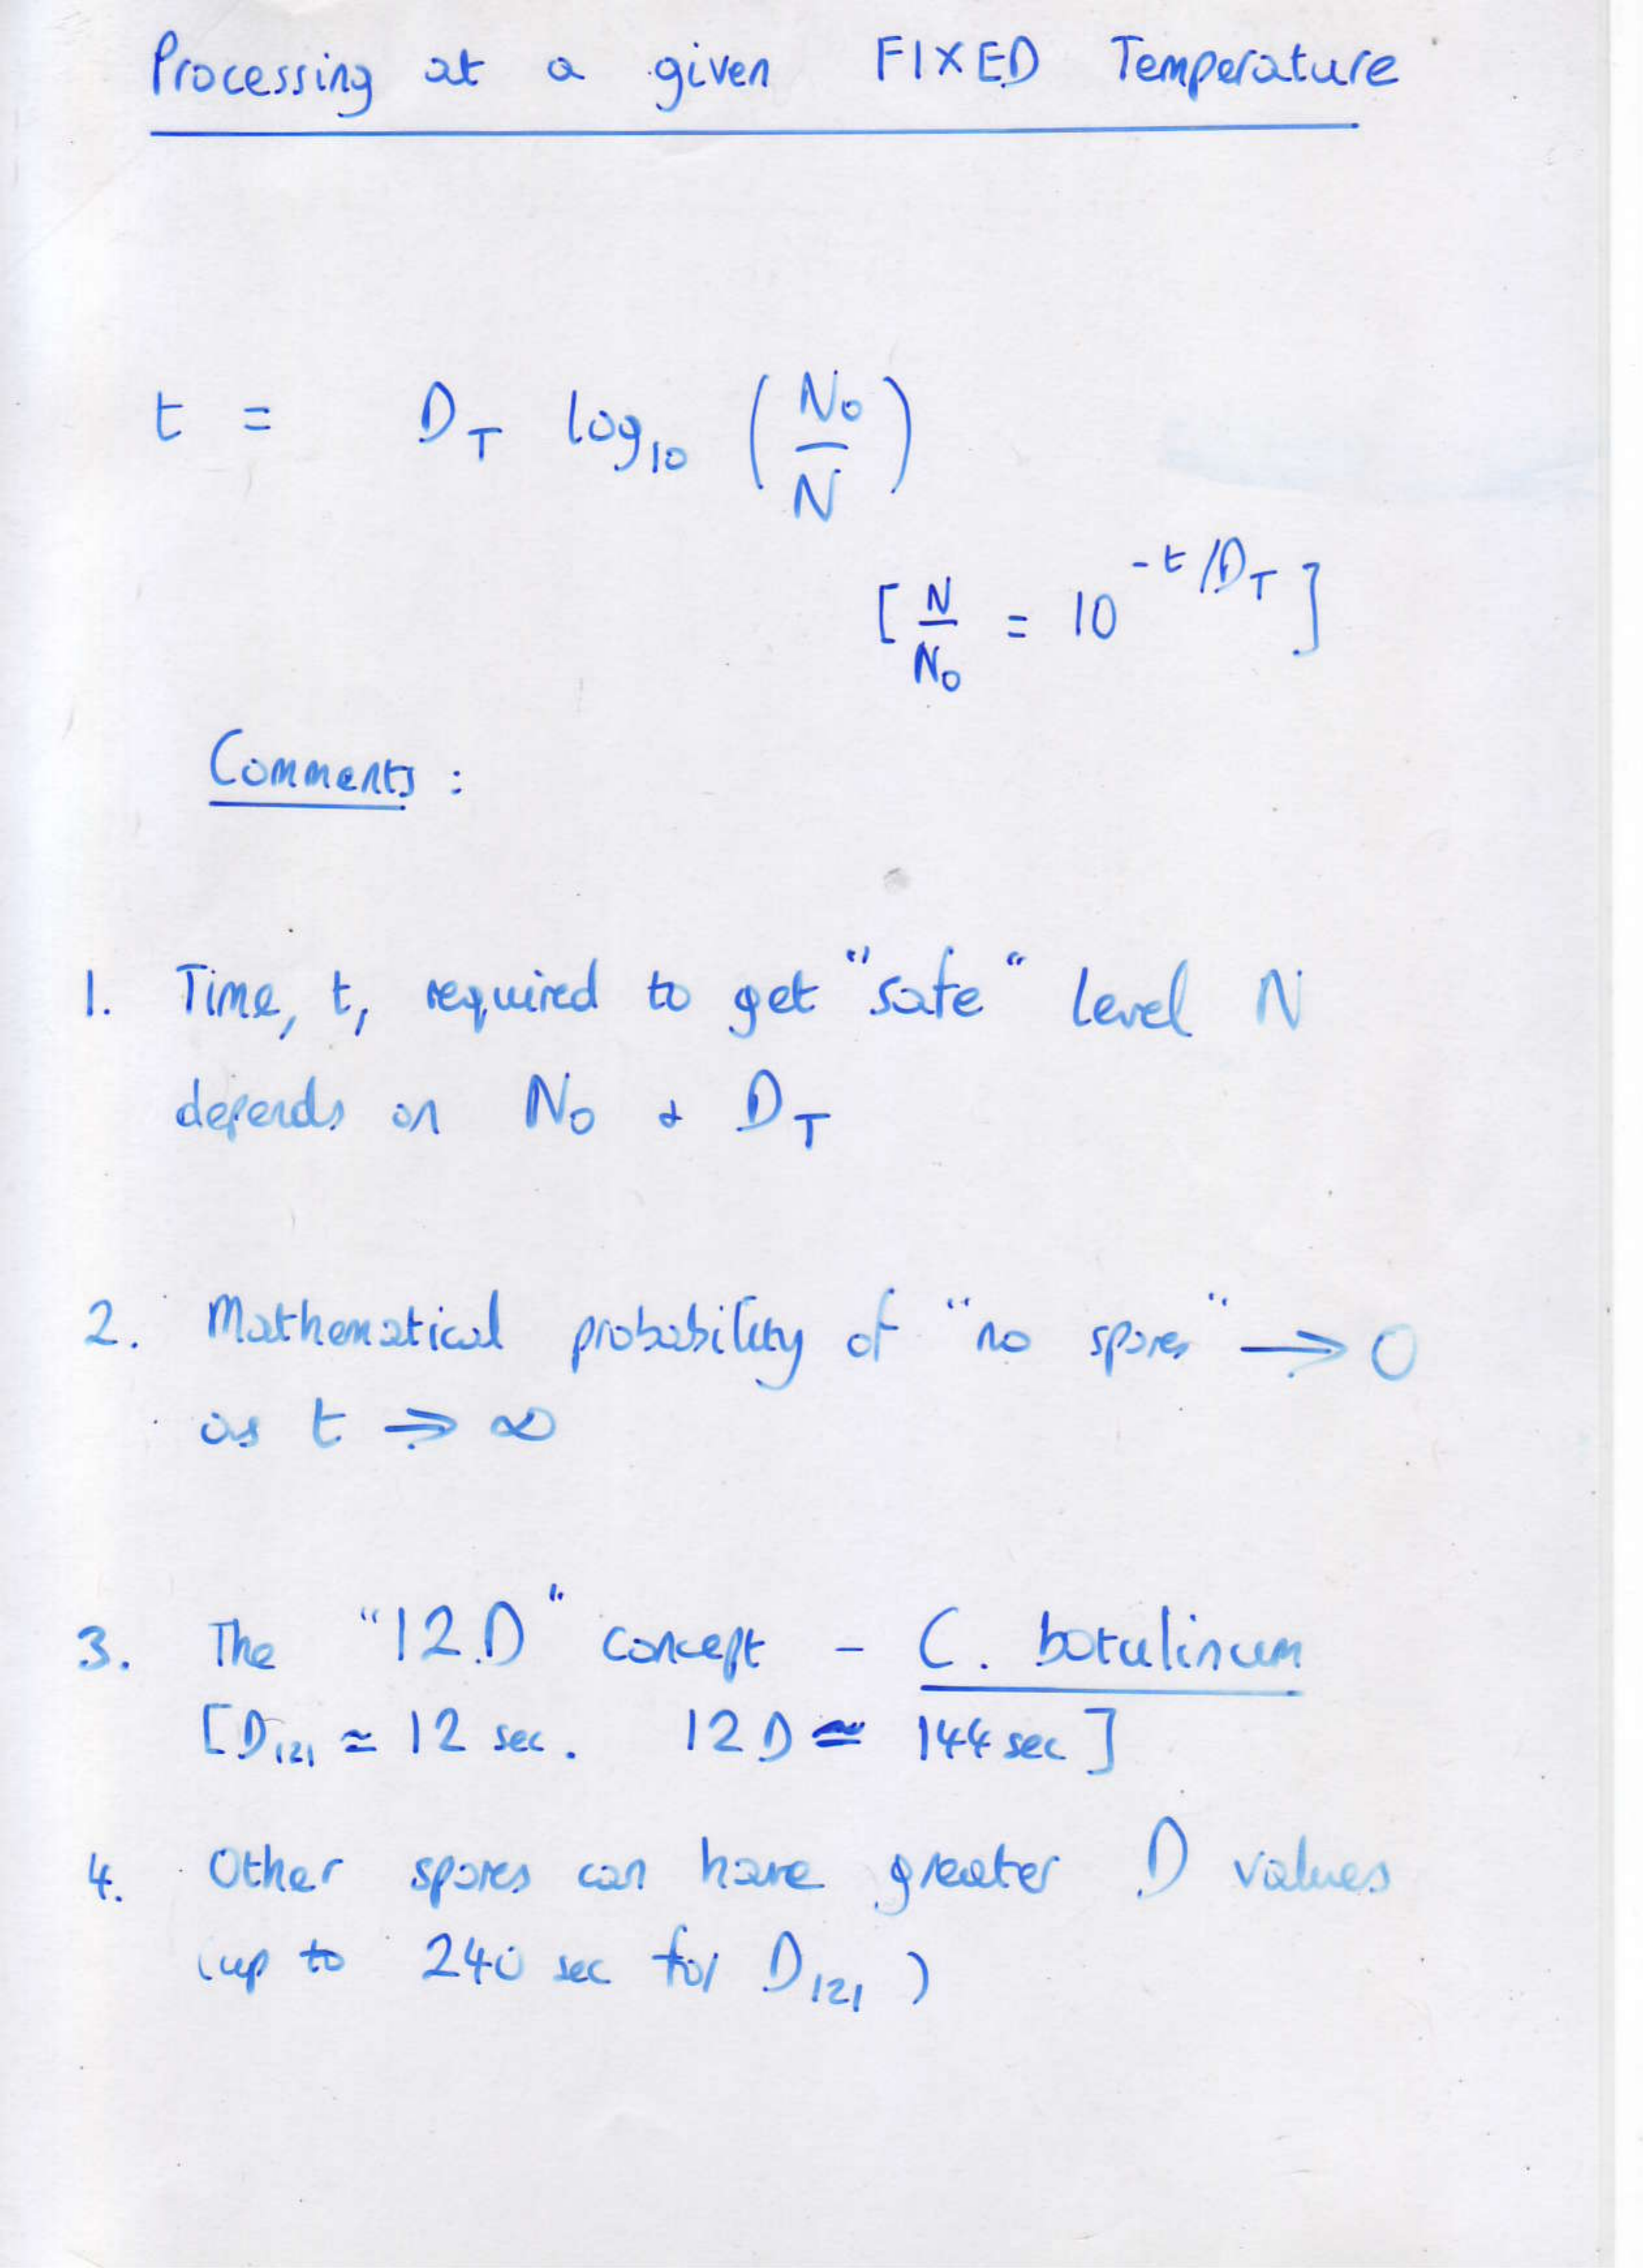 Processing at a given FIXED Temperature
t = D_T log_10 (N_0/N)
[N/N_0 = 10^(-t/D_T)]
Comments :
1. Time, t, required to get "safe" level N
depends on N_0 & D_T
2. Mathematical probability of "no spores" → 0
as t → ∞
3. The "12.D" concept - C. botulinum
[D_121 ≃ 12 sec. 12D ≃ 144 sec]
4. Other spores can have greater D values
(up to 240 sec for D_121)